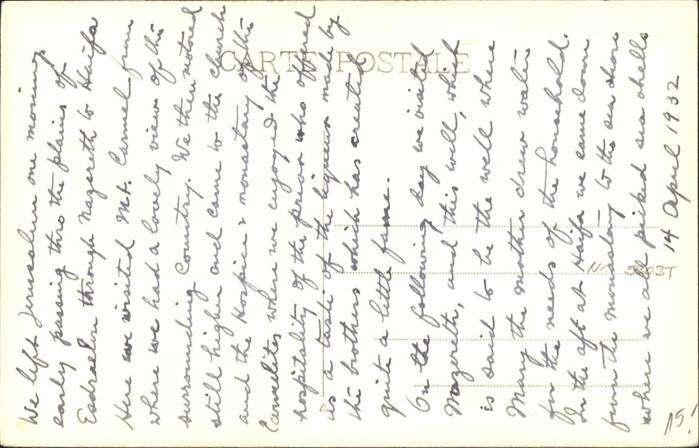 We left Jerusalem one morning
early passing thro the plains of
Esdraelen through Nazareth to Haifa
Here we visited Mt. Carmel from
where we had a lovely view of the
surrounding Country. We then motored
still higher and came to the church
and the Hospice & monastary of the
Carmelites where we enjoyed the
hospitality of the prior who offered
us a taste of the liqueur made by
the brothers which has created
quite a little fame.
On the following day we visited
Nazareth, and this well, what
is said to be the well where
Mary the mother drew water
for the needs of the household.
In the aft at Haifa we came down
from the monastary to the sea shore
where we all picked sea shells
14 April 1932
CARTE POSTALE
15/